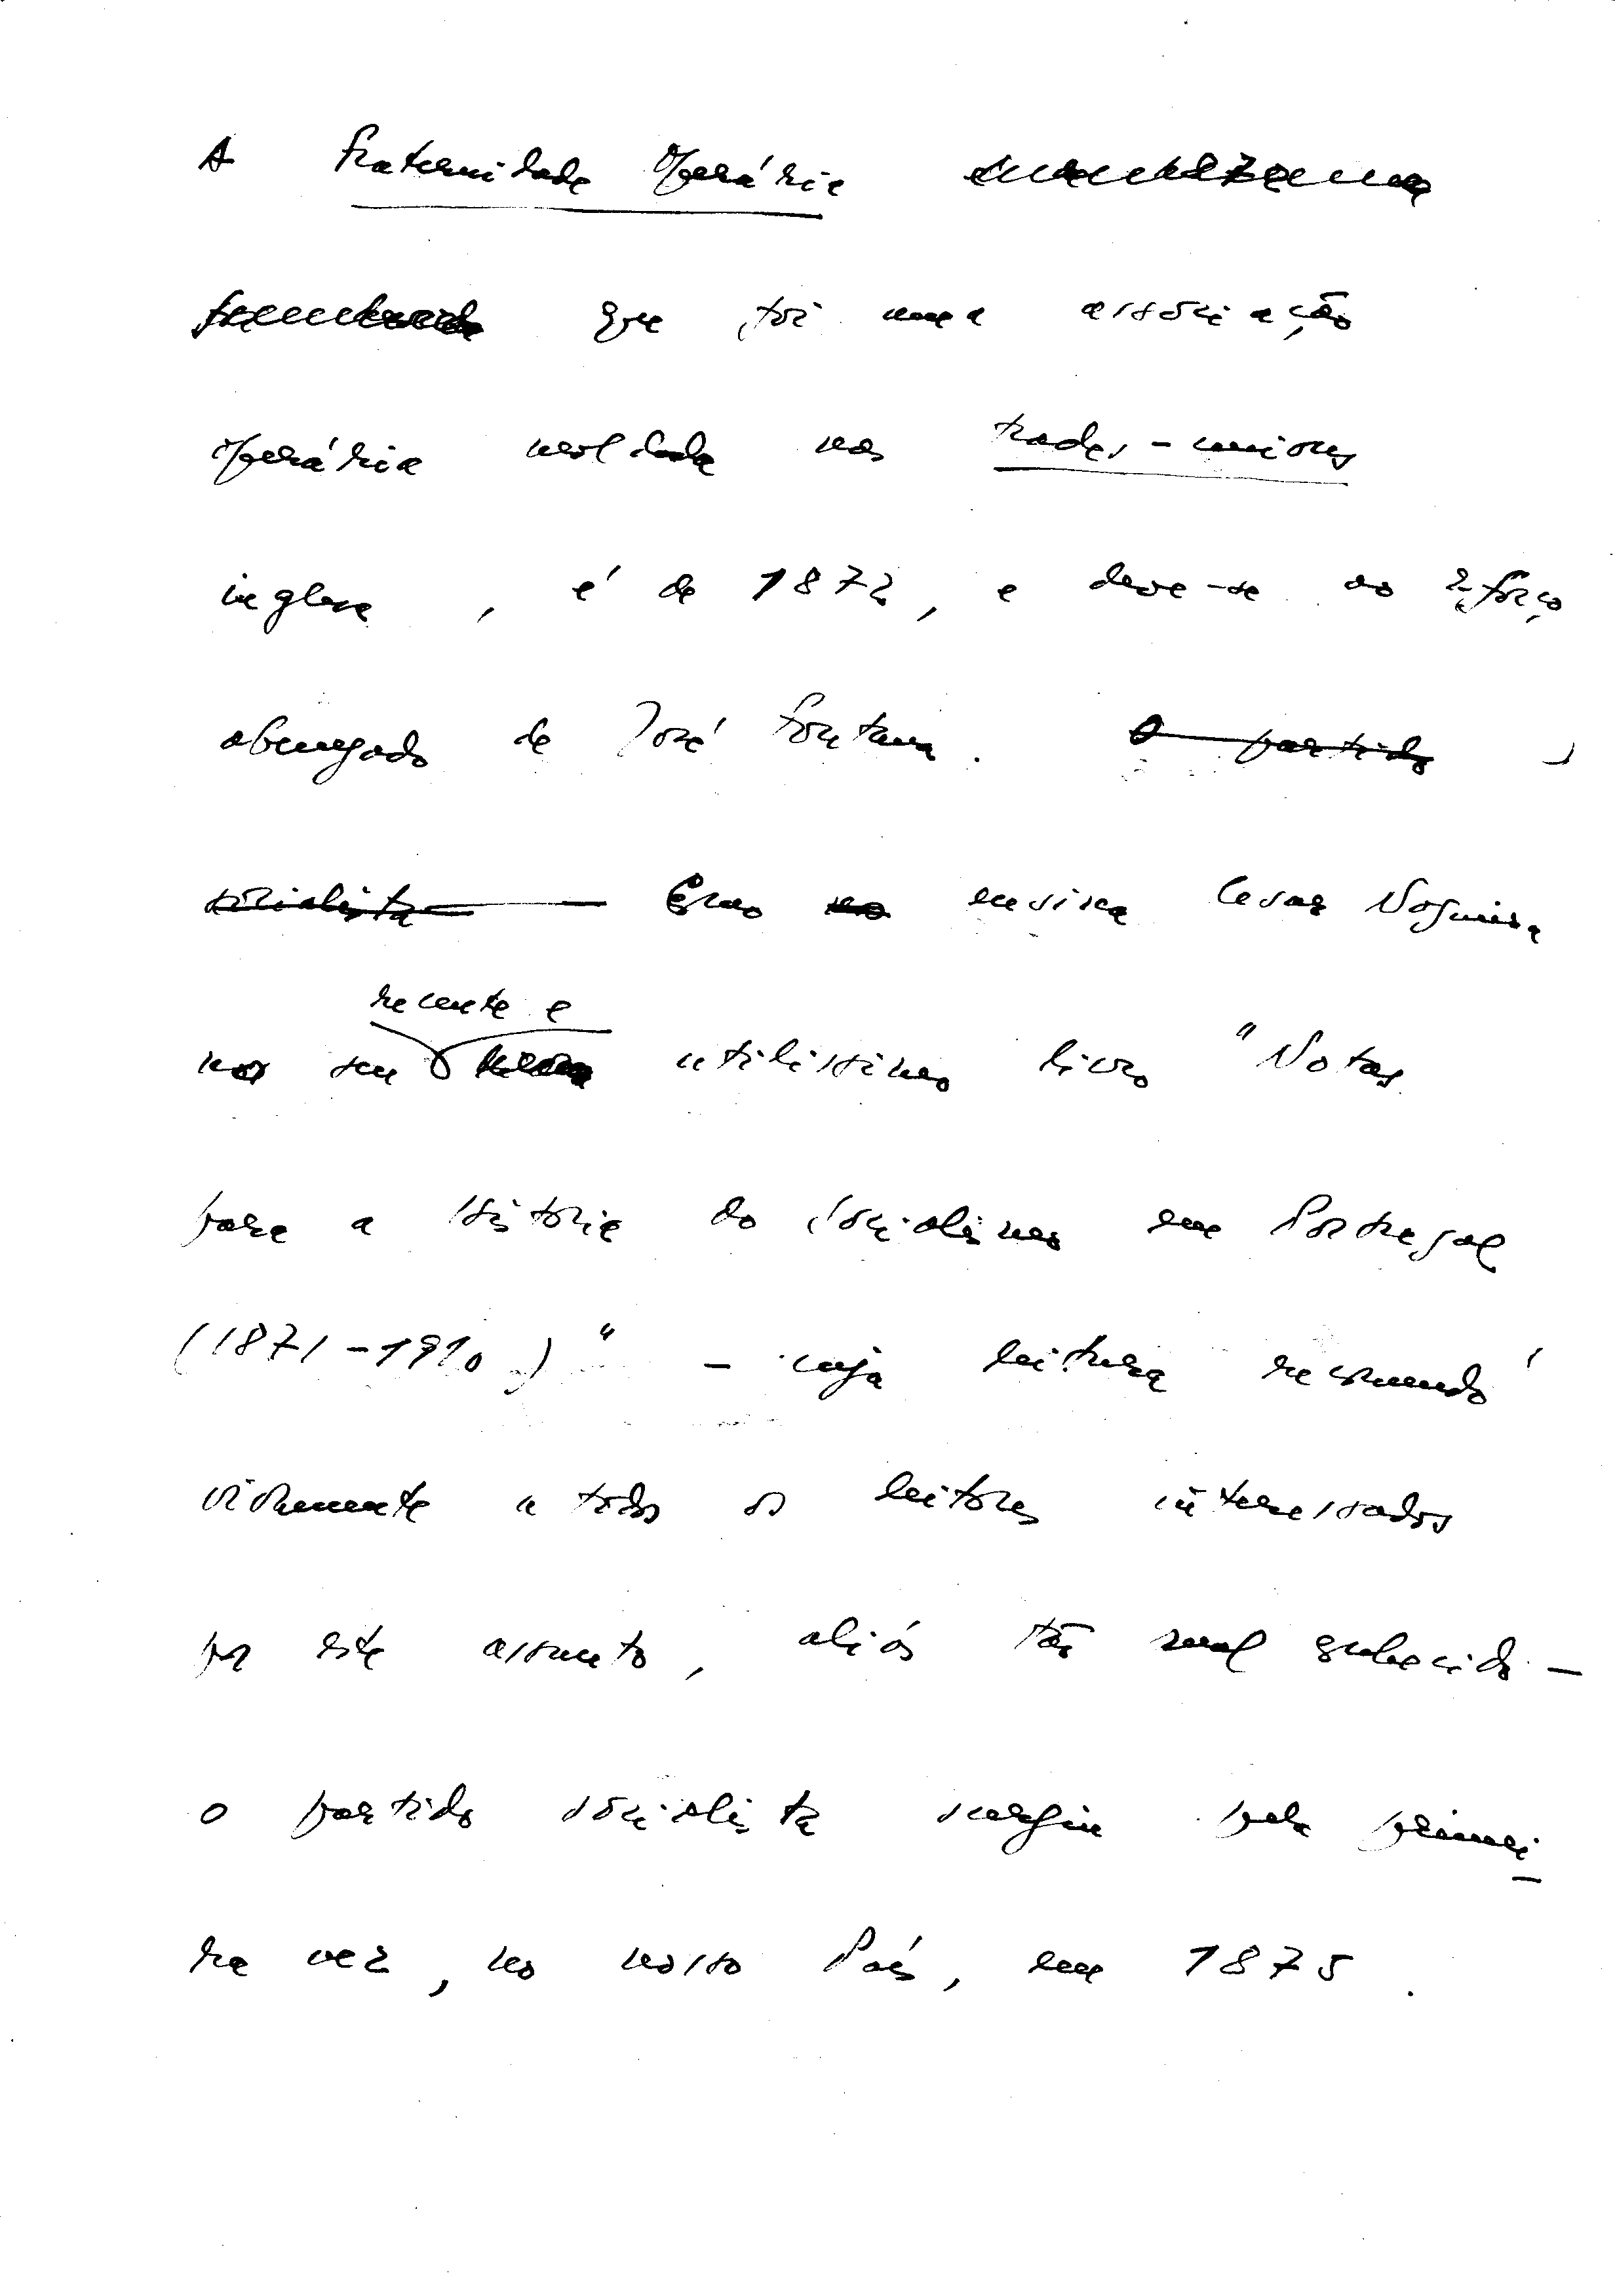 A Fraternidade Operária
que foi uma associação
operária moldada nas trades-unions
inglesa, é de 1872, e deve-se ao esforço
abnegado de José Fontana. O partido
socialista Como no ensina Cesar Nogueira
recente e
no seu utilissimo livro "Notas
para a História do Socialismo em Portugal
(1871-1910)" - cuja leitura recomendo
vivamente a todos os leitores interessados
por este assunto, aliás tão mal conhecido -
o partido socialista surgiu pela primei-
ra vez, no nosso País, em 1875.